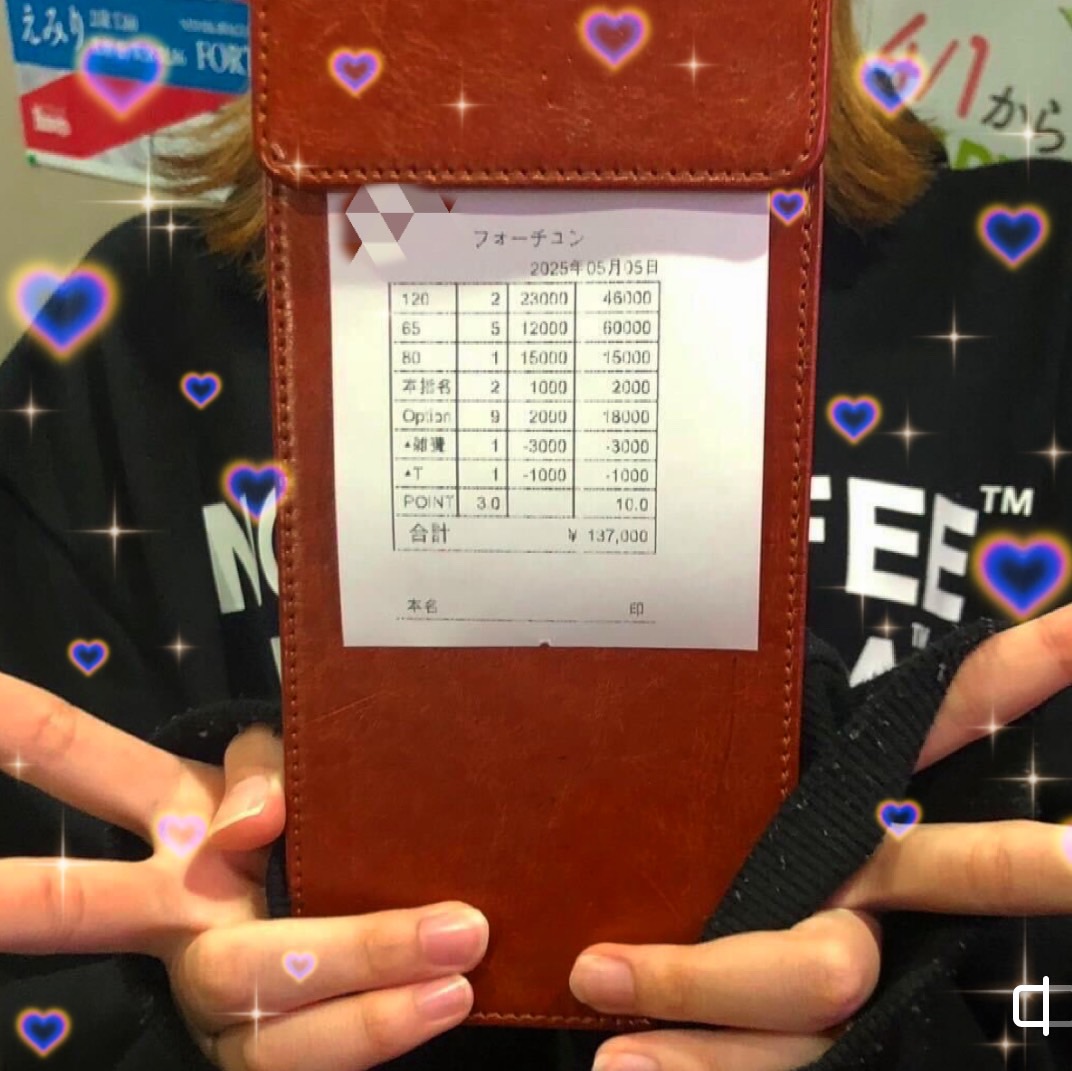 えみり
FOR
4/1
から
フォーチュン
2025年05月05日
120 2 23000 46000
65 5 12000 60000
80 1 15000 15000
本指名 2 1000 2000
Option 9 2000 18000
▲雑費 1 -3000 -3000
▲T 1 -1000 -1000
POINT 3.0 10.0
合計 ¥ 137,000
本名 印
NO FEE™
A™